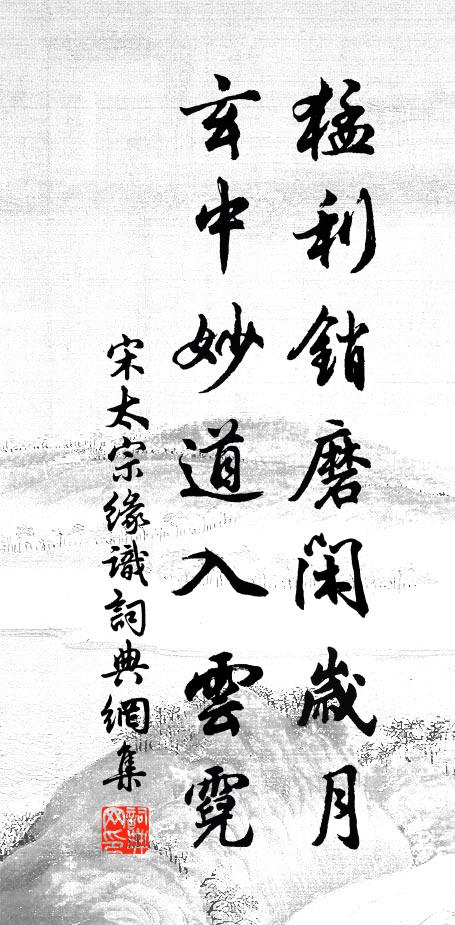 猛利銷磨閑歲月
玄中妙道入雲霓
宋太宗緣識詞典網集